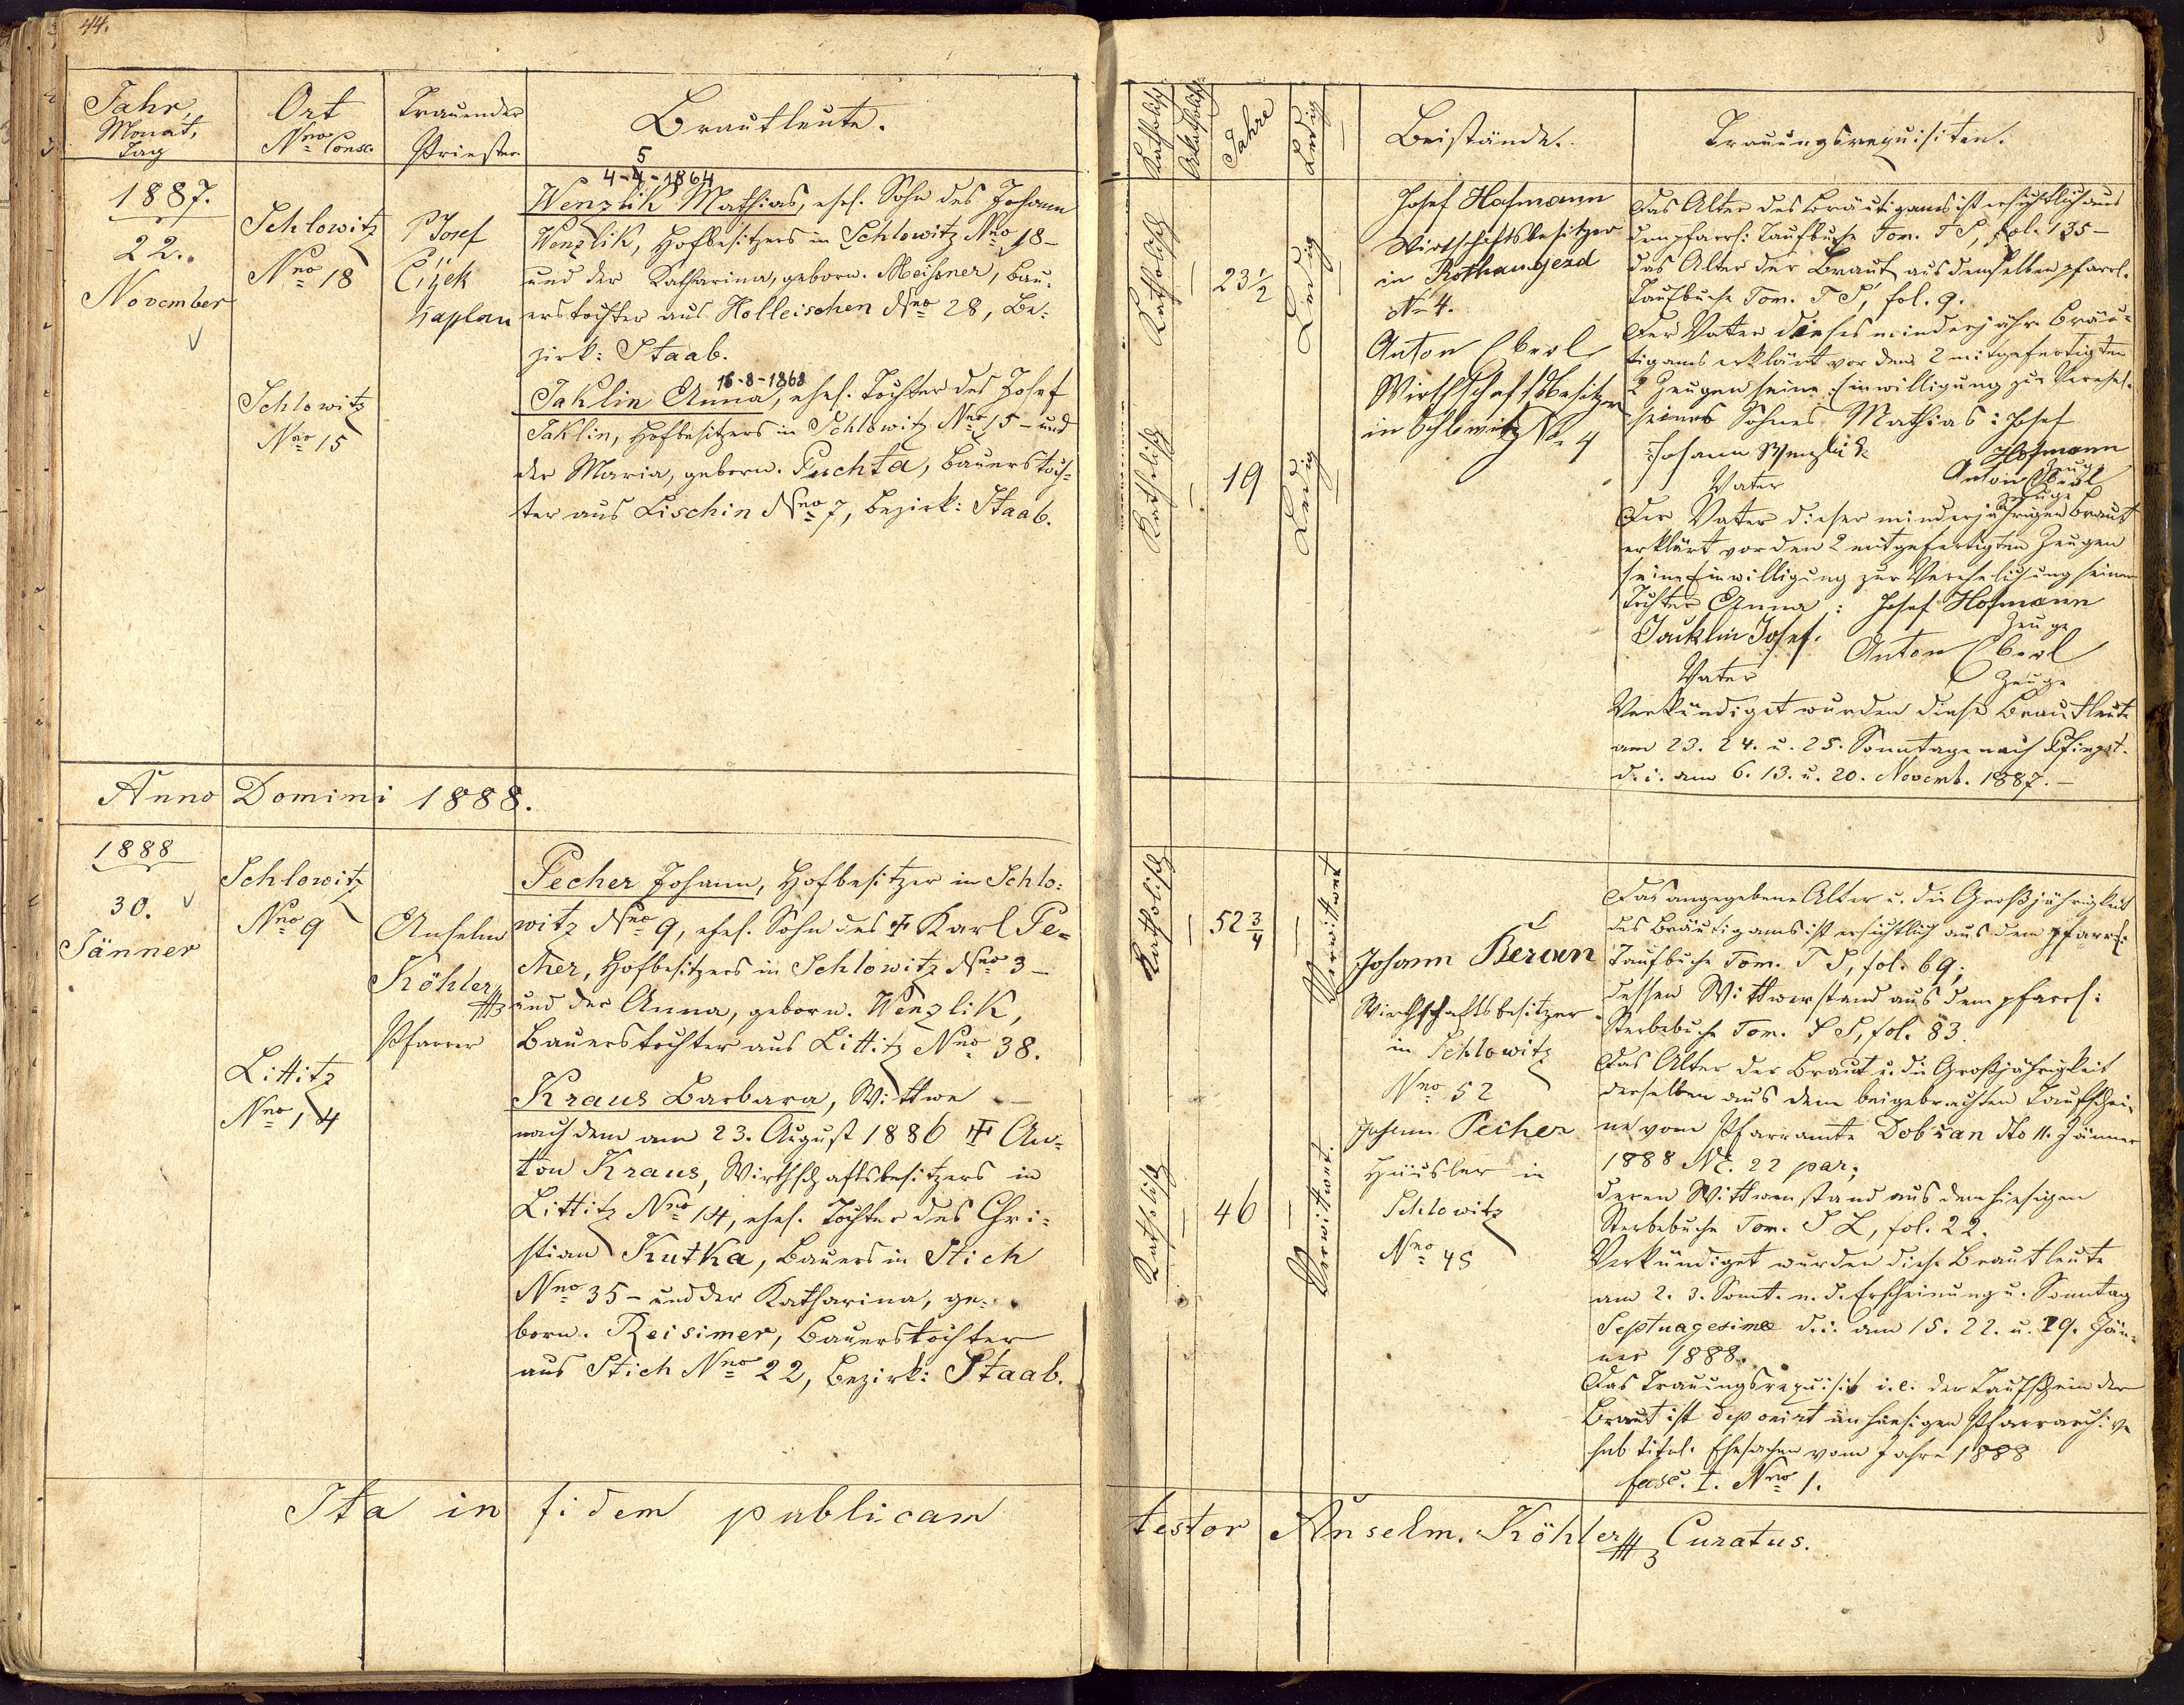 44.
Jahr,
Monat,
Tag
Ort
Nro Consc.
Trauender
Priester
Brautleute.
1887.
22.
November
Schlowitz
Nro 18
P Josef
Čížek
Kaplan
5
4-4-1864
Wenzlik Mathias, ehel. Sohn des Johann
Wenzlik, Hofbesitzers in Schlowitz Nro 18 –
und der Katharina, geborn. Meißner, Bau-
erstochter aus Holleischen Nro 28, Be-
zirk: Staab.
Schlowitz
Nro 15
16-8-1868
Jaklin Anna, ehel. Tochter des Josef
Jaklin, Hofbesitzers in Schlowitz Nro 15 – und
der Maria, geborn. Puchta, Bauerstoch-
ter aus Lischin Nro 7, Bezirk: Staab.
Anno Domini 1888.
1888
30.
Jänner
Schlowitz
Nro 9
Anselm
Köhler
Pfarrer
Pecher Johann, Hofbesitzer in Schlo-
witz Nro 9, ehel. Sohn des † Karl Pe-
cher, Hofbesitzers in Schlowitz Nro 3 –
und der Anna, geborn. Wenzlik,
Bauerstochter aus Littitz Nro 38.
Littitz
Nro 14
Kraus Barbara, Wittwe
nach dem am 23. August 1886 † An-
ton Kraus, Wirthschaftsbesitzers in
Littitz Nro 14, ehel. Tochter des Chri-
stian Kutka, Bauers in Stich
Nro 35 – und der Katharina, ge-
born. Reisimer, Bauerstochter
aus Stich Nro 22, Bezirk: Staab.
Ita in fidem publicam
Katholisch
Akatholisch
Jahre
Ledig
Beistände.
Trauungsrequisiten.
Katholisch
23 1/2
Ledig
Katholisch
19
Ledig
Josef Hofmann
Wirtschaftsbesitzer
in Rothaugezd
No 4.
Anton Eberl
Wirthschaftsbesitzer
in Schlowitz No 4
Das Alter des Bräutigams ist ersichtlich aus
dem pfarrl: Taufbuche Tom. T S, fol. 135 –
das Alter der Braut aus demselben pfarrl.
Taufbuche Tom. T S, fol. 9.
Der Vater dieses minderjähr. Bräu-
tigams erklärt vor den 2 mitgefertigten
2 Zeugen seine Einwilligung zur Verehel.
seines Sohnes Mathias: Josef
Johann Wenzlik Hofmann
Zeuge
Vater Anton Eberl
Zeuge
Der Vater dieser minderjährigen Braut
erklärt vor den 2 mitgefertigten Zeugen
seine Einwilligung zur Verehelichung seiner
Tochter Anna: Josef Hofmann
Zeuge
Jacklin Josef. Anton Eberl
Vater Zeuge
Verkündiget wurden diese Brautleute
am 23. 24. u. 25. Sonntage nach Pfingst.
d. i. am 6. 13. u. 20. Novemb. 1887. –
Katholisch
52 3/4
Verwittwet
Katholisch
46
Verwittwet.
Johann Beran
Wirthschaftsbesitzer
in Schlowitz
Nro 52
Johann Pecher
Häusler in
Schlowitz
Nro 45
Das angegebene Alter u. die Großjährigkeit
des Bräutigams ist ersichtlich aus dem pfarrl:
Taufbuche Tom. T S, fol. 69;
dessen Wittwerstand aus dem pfarrl:
Sterbebuche Tom. S S, fol. 83.
Das Alter der Braut u. die Großjährigkeit
derselben aus dem beigebrachten Taufschei-
ne vom Pfarramte Dobřan dto 11. Jänner
1888 NE. 22 par;
deren Wittwenstand aus dem hiesigen
Sterbebuche Tom. S L, fol. 22.
Verkündiget wurden diese Brautleute
am 2. 3. Sonnt. n. d. Erscheinung u. Sonntag
Septuagesimae d. i. am 15. 22. u. 29. Jän-
ner 1888.
Das Trauungsrequisit i. e. der Taufschein der
Braut ist deponirt im hiesigen Pfarrarchive
sub titul. Ehesachen vom Jahre 1888
fasc. I. Nro 1.
testor Anselm. Köhler Curatus.